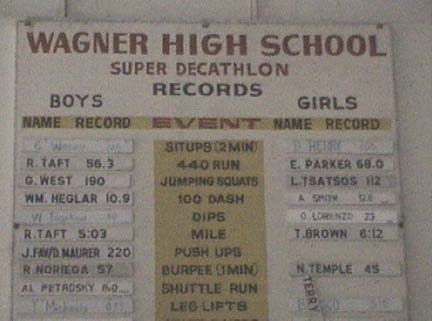 WAGNER HIGH SCHOOL
SUPER DECATHLON
RECORDS
BOYS GIRLS
NAME RECORD EVENT NAME RECORD
SITUPS (2 MIN) D. HENRY
R. TAFT 56.3 440 RUN E. PARKER 68.0
G. WEST 190 JUMPING SQUATS L. TSATSOS 112
WM. HEGLAR 10.9 100 DASH A. SMITH
DIPS O. LORENZO 23
R. TAFT 5:03 MILE T. BROWN 6:12
J. FAV/D. MAURER 220 PUSH UPS
R. NORIEGA 57 BURPEE (1 MIN) N. TEMPLE 45
AL PETROSKY SHUTTLE RUN TERRY
LEG LIFTS